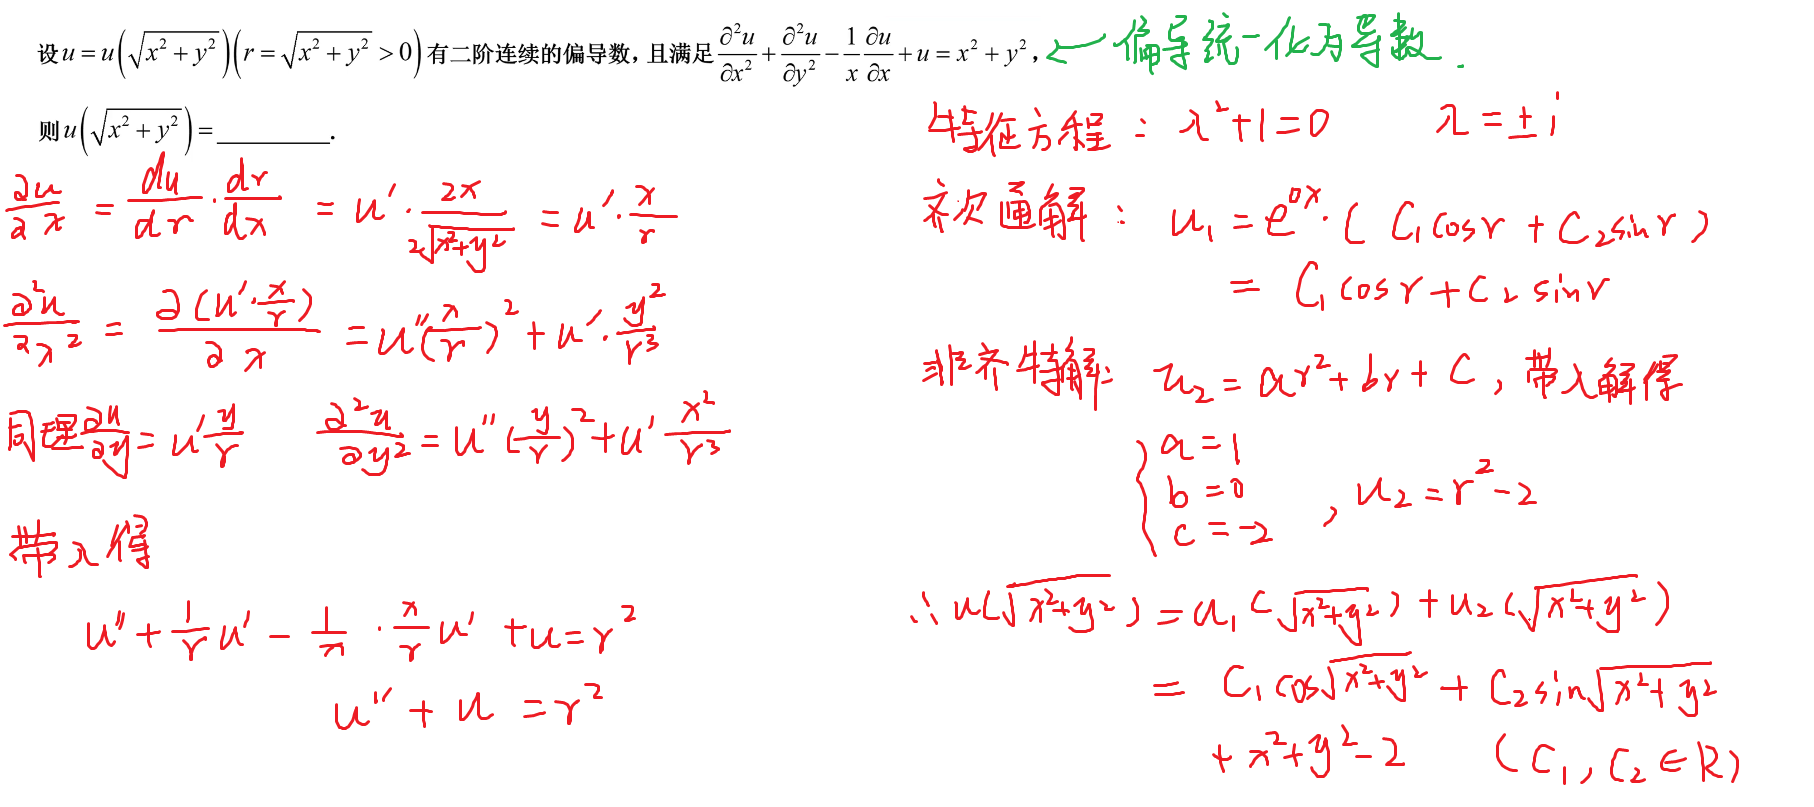 设 u = u(√(x² + y²))(r = √(x² + y²) > 0) 有二阶连续的偏导数, 且满足 ∂²u/∂x² + ∂²u/∂y² − (1/x)(∂u/∂x) + u = x² + y²,
← 偏导统一化为导数.
则 u(√(x² + y²)) = ________.
∂u/∂x = du/dr · dr/dx = u′ · 2x/(2√(x²+y²)) = u′ · x/r
∂²u/∂x² = ∂(u′·x/r)/∂x = u″(x/r)² + u′ · y²/r³
同理 ∂u/∂y = u′ y/r ∂²u/∂y² = u″(y/r)² + u′ x²/r³
带入得
u″ + (1/r)u′ − (1/x) · (x/r)u′ + u = r²
u″ + u = r²
特征方程: λ² + 1 = 0 λ = ± i
齐次通解: u₁ = e^(0x) · (C₁cosr + C₂sinr)
= C₁cosr + C₂sinr
非齐特解: u₂ = ar² + br + C, 带入解得
{ a = 1
b = 0
c = -2 , u₂ = r² - 2
∴ u(√(x²+y²)) = u₁(√(x²+y²)) + u₂(√(x²+y²))
= C₁cos√(x²+y²) + C₂sin√(x²+y²)
+ x² + y² - 2 (C₁, C₂ ∈ R)